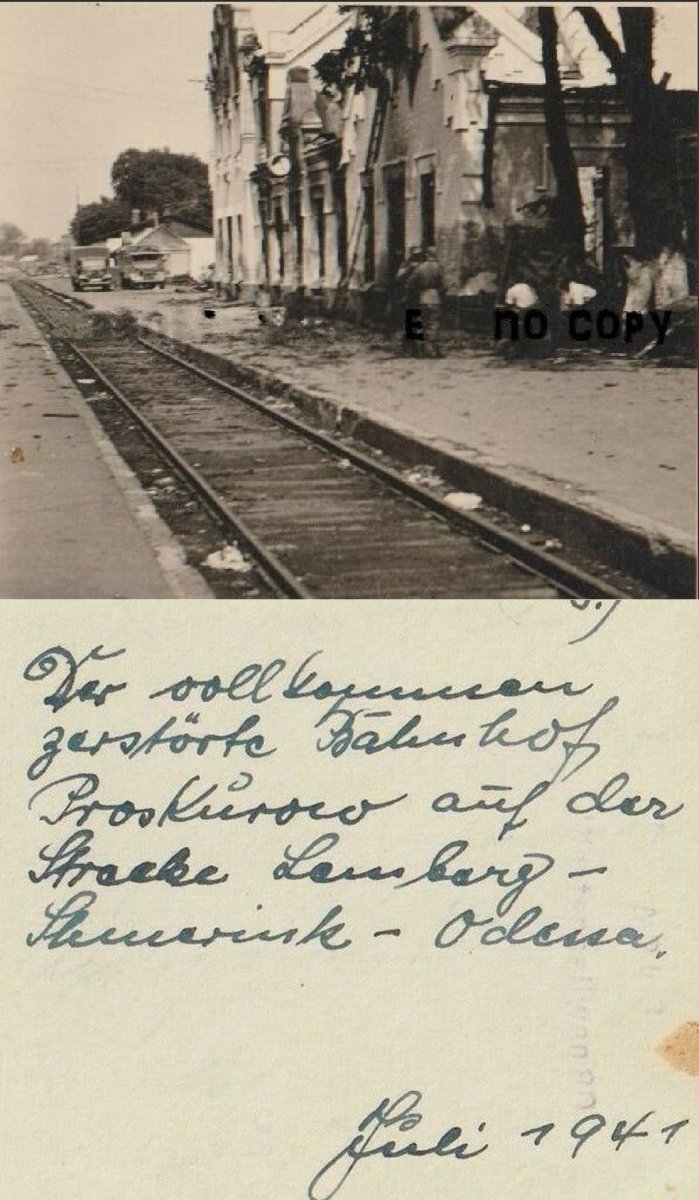 E no copy
Der vollkommen
zerstörte Bahnhof
Proskurow auf der
Strecke Lemberg -
Shmerink - Odessa.
Juli 1941